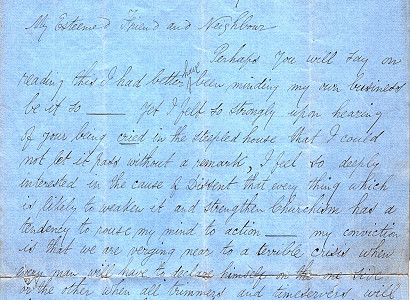 My Esteemed Friend and Neighbour
Perhaps You will say on
reading this I had better have been minding my own business
be it so —— Yet I felt so strongly upon hearing
of your being cried in the steepled house that I could
not let it pass without a remark, I feel so deeply
interested in the cause of Dissent that every thing which
is likely to weaken it and strengthen Churchism has a
tendency to rouse my mind to action —— my conviction
is that we are verging near to a terrible crisis when
every man will have to declare himself on the one side
or the other when all trimmers and timeservers will